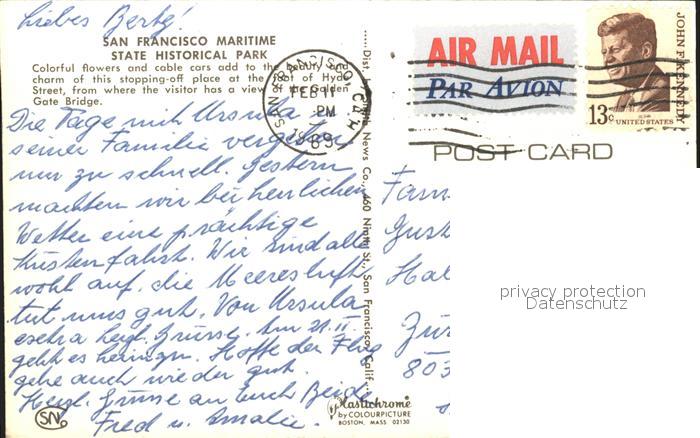 Liebes Berty!
SAN FRANCISCO MARITIME
STATE HISTORICAL PARK
Colorful flowers and cable cars add to the beauty and
charm of this stopping-off place at the foot of Hyde
Street, from where the visitor has a view of the Golden
Gate Bridge.
Die Tage mit Ursula
seiner Familie vergehen
nur zu schnell. Gestern
machten wir bei herrlichem
Wetter eine prächtige
Küstenfahrt. Wir sind alle
wohl auf, die Meeresluft
tut uns gut. Von Ursula
extra herzl. Grüsse. Am 21. II.
geht es heimzu. Hoffe der Flug
gehe auch wieder gut.
Herzl. Grüsse an Euch Beide
Fred u. Amalie.
SN
News Co., 460 Ninth St., San Francisco Calif.
Plastichrome
by COLOURPICTURE
BOSTON, MASS 02130
SAN FRANCISCO CA
FEB 11
PM
1969
AIR MAIL
PAR AVION
JOHN F. KENNEDY
13c
UNITED STATES
POST CARD
Fam
Gust
Hal
Zür
803
privacy protection
Datenschutz